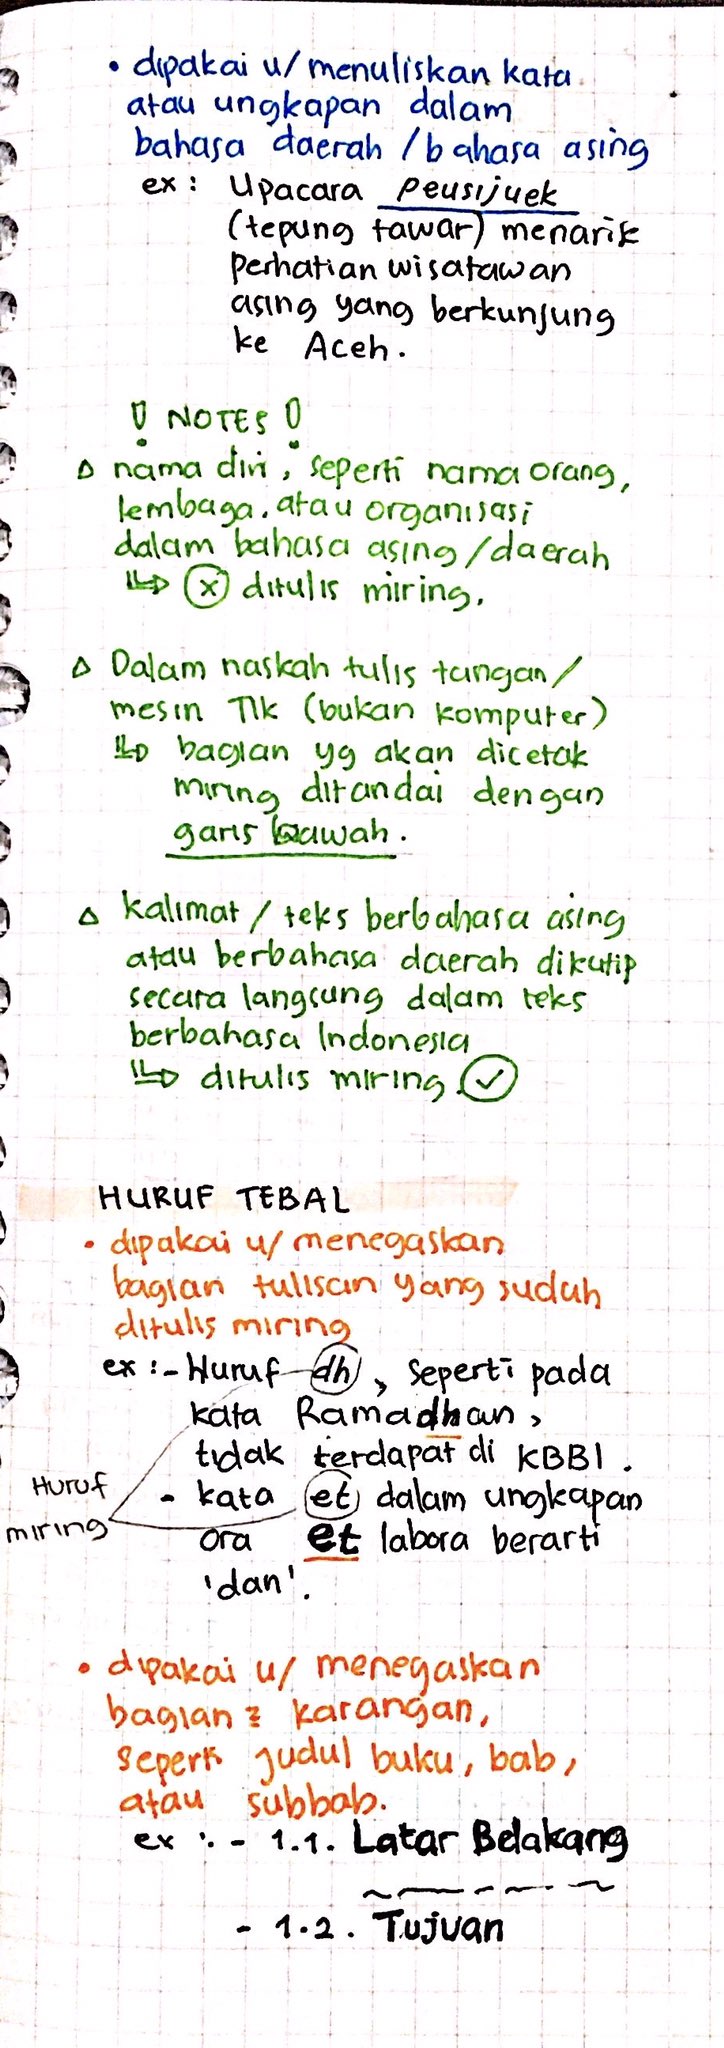 • dipakai u/ menuliskan kata
atau ungkapan dalam
bahasa daerah / bahasa asing
ex : Upacara peusijuek
(tepung tawar) menarik
perhatian wisatawan
asing yang berkunjung
ke Aceh.
! NOTES !
△ nama diri, seperti nama orang,
lembaga, atau organisasi
dalam bahasa asing/daerah
↳ ⓧ ditulis miring.
△ Dalam naskah tulis tangan/
mesin Tik (bukan komputer)
↳ bagian yg akan dicetak
miring ditandai dengan
garis bawah.
△ kalimat / teks berbahasa asing
atau berbahasa daerah dikutip
secara langsung dalam teks
berbahasa Indonesia
↳ ditulis miring ✓
HURUF TEBAL
• dipakai u/ menegaskan
bagian tulisan yang sudah
ditulis miring
ex : - Huruf dh, seperti pada
kata Ramadhan,
tidak terdapat di KBBI.
Huruf
miring
- kata et dalam ungkapan
ora et labora berarti
'dan'.
• dipakai u/ menegaskan
bagian2 karangan,
seperti judul buku, bab,
atau subbab.
ex : - 1.1. Latar Belakang
- 1.2. Tujuan